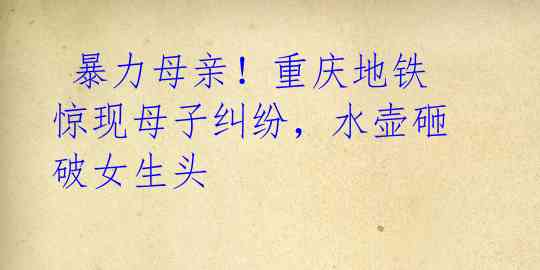 暴力母亲！重庆地铁
惊现母子纠纷，水壶砸
破女生头